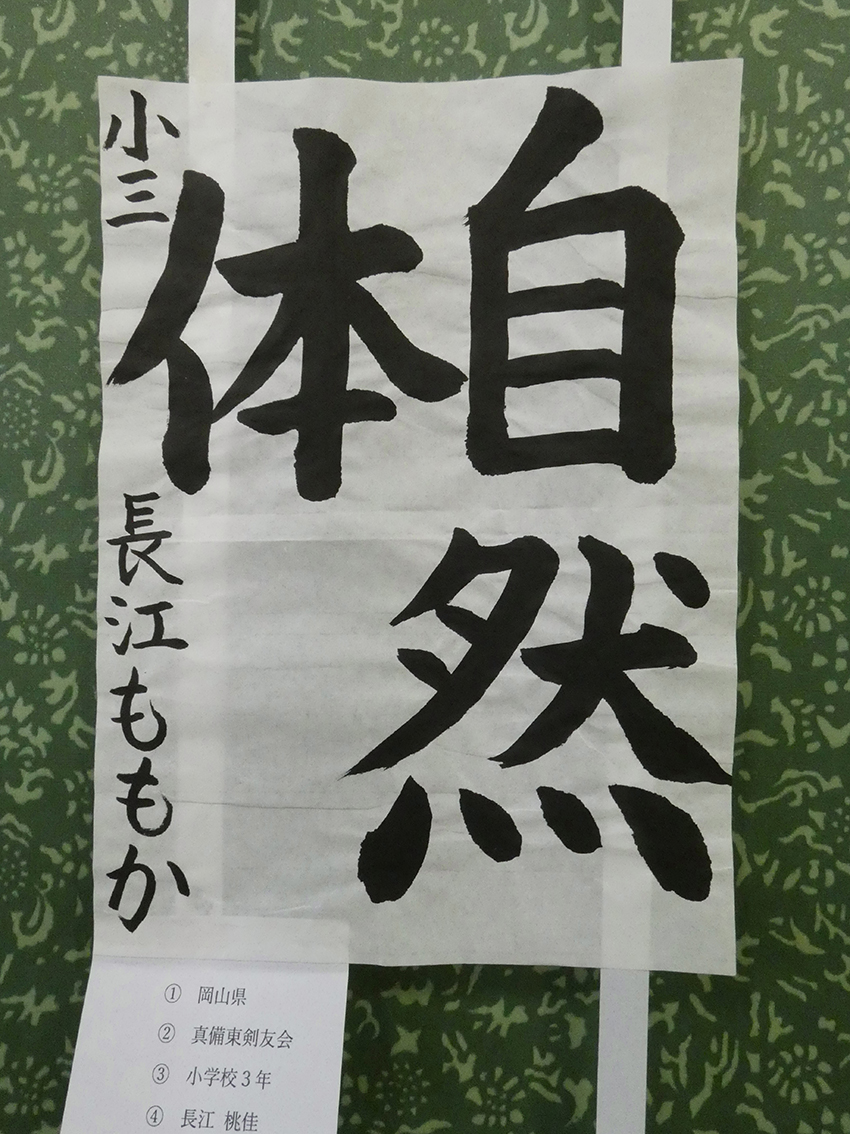 自然
体
小三 長江ももか
① 岡山県
② 真備東剣友会
③ 小学校3年
④ 長江 桃佳